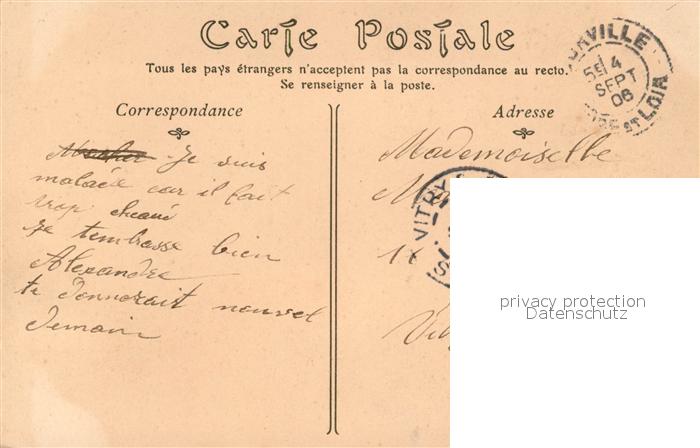 Carte Postale
Tous les pays étrangers n'acceptent pas la correspondance au recto.
Se renseigner à la poste.
Correspondance
Adresse
Je suis
malade car il fait
trop chaud
Je tembrasse bien
Alexandre
te donnerait nouvel
demain
Mademoiselle
16
ORVILLE
5E 4
SEPT
06
ET LOIR
VITRY
privacy protection
Datenschutz